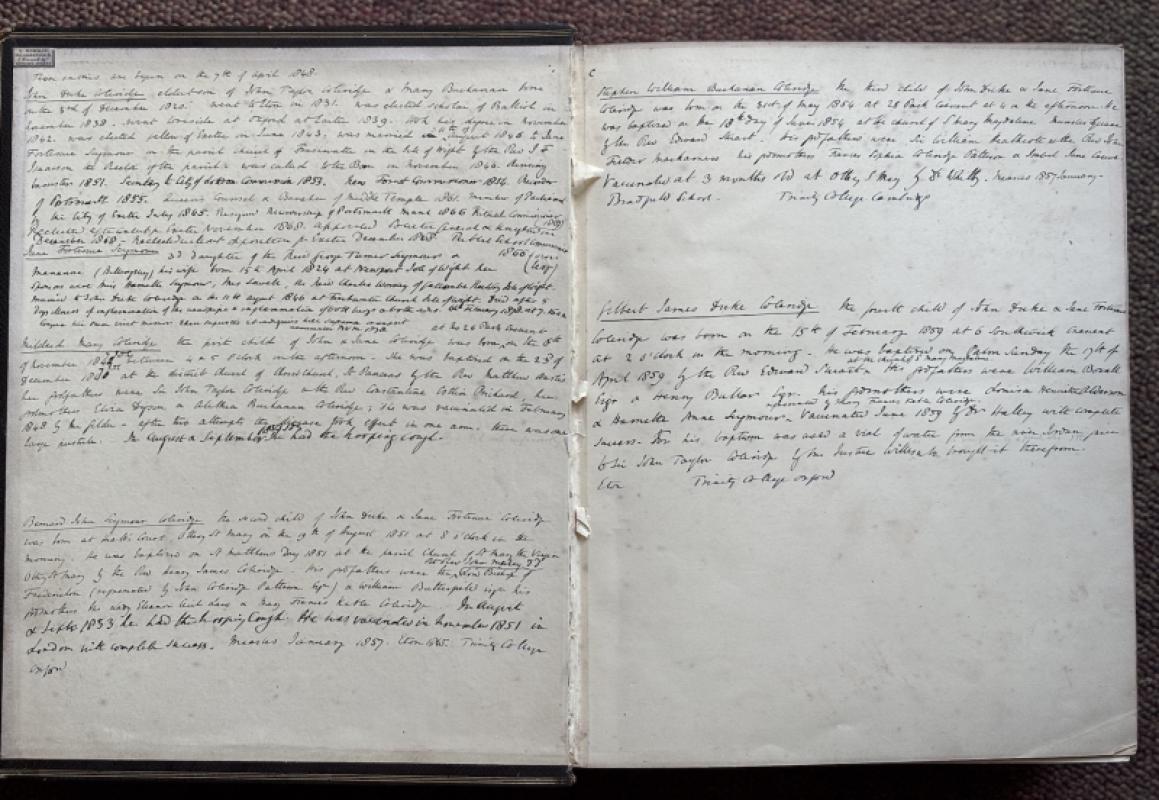 These entries are begun on the 7th of April 1848
John Duke Coleridge eldest son of John Taylor Coleridge & Mary Buchanan born
on the 3rd of December 1820. went to Eton in 1831. was elected scholar of Balliol in
November 1838. went to reside at Oxford at Easter 1839. took his degree in November
1842. was elected fellow of Exeter in June 1843; was married on 11th August 1846 to Jane
Fortescue Seymour in the parish church of Freshwater in the Isle of Wight by the Rev J F
Isaacson the Rector of the parish. was called to the Bar in November 1846. Running
barrister 1851. Secretary to City of London Commission 1853. New Forest Commissioner 1854. Recorder
of Portsmouth 1855. Queens Counsel & Bencher of Middle Temple 1861. Member of Parliament
for City of Exeter July 1865. Resigned Recordership of Portsmouth March 1866 Ritual Commissioner
Reelected for Exeter November 1868. appointed Solicitor General & knighted in
December 1868 - Exeter December 1868 Public School Commissioner
Jane Fortescue Seymour 3d Daughter of the Rev George Turner Seymour & 1866
Marianne (Billingsley) his wife born 15th April 1824 at Newport Isle of Wight her
Sponsors were Miss Harriette Seymour, Mrs Lavelle, the Rev Charles Worsley of Isle of Wight.
Married to John Duke Coleridge on the 11th August 1846 at Freshwater Church Isle of Wight. Died after 5
days illness of inflammation of the & inflammation of both lungs 6th February 1878 at 7.
at No 26 Park Crescent
Mildred Mary Coleridge the first child of John & Jane Coleridge was born, on the 5th
of November 1847 between 4 & 5 o'clock in the afternoon. She was baptized on the 28th of
December 1847 at the district Church of Christchurch, St Pancras by the Rev Matthew
her godfathers were Sir John Taylor Coleridge & the Rev Constantine Prichard, her
godmothers Eliza Dyson & Alethea Buchanan Coleridge; she was vaccinated in February
1848 by Mr - after two attempts the disease took effect in one arm. there was one
large pustule. In August & September 1853 she had the hooping cough.
Bernard John Seymour Coleridge the second child of John Duke & Jane Fortescue Coleridge
was born at Heath's Court, Ottery St Mary on the 19th of August 1851 at 8 o'clock in the
morning. He was baptized on St Matthews Day 1851 at the parish Church of St Mary the Virgin
Ottery St Mary by the Rev Henry James Coleridge. His godfathers were the Rev John Medley DD Lord Bishop of
Fredericton (represented by John Coleridge Patteson Esqr) & William Butterfield Esqr his
godmothers the Lady & Mary Frances Keble Coleridge. In August
& Septr 1853 he had the hooping cough. He was vaccinated in November 1851 in
London with complete success. Measles January 1857. Eton 1865. Trinity College
Oxford
Stephen William Buchanan Coleridge the third child of John Duke & Jane Fortescue
Coleridge was born on the 31st of May 1854 at 26 Park Crescent at 4 in the afternoon. he
was baptized on the 18th Day of June 1854 at the church of S Mary Magdalene Munster Square
by the Rev Edward Stuart. his godfathers were Sir William Heathcote & the Rev John
Fielder Mackarness his godmothers Frances Sophia Coleridge Patteson & Isabel Jane
Vaccinated at 3 months old at Ottery S Mary by Dr Whitby. Measles 1857 January.
Bradfield School. Trinity College Cambridge
Gilbert James Duke Coleridge the fourth child of John Duke & Jane Fortescue
Coleridge was born on the 15th of February 1859 at 6 Southwick Crescent
at 2 o'clock in the morning. He was baptized on Palm Sunday the 17th of
April 1859 by the Rev Edward Stuart at the church of S Mary Magdalene. His godfathers were William Boxall
Esqr & Henry Bullar Esqr. his Godmothers were Louisa Henrietta Alderson represented by Mary Frances Keble Coleridge
& Harriette Anne Seymour. Vaccinated June 1859 by Dr Halley with complete
success. For his baptism was used a vial of water from the river Jordan given
to Sir John Taylor Coleridge by Mr Justice Willes who brought it therefrom.
Eton Trinity College Oxford